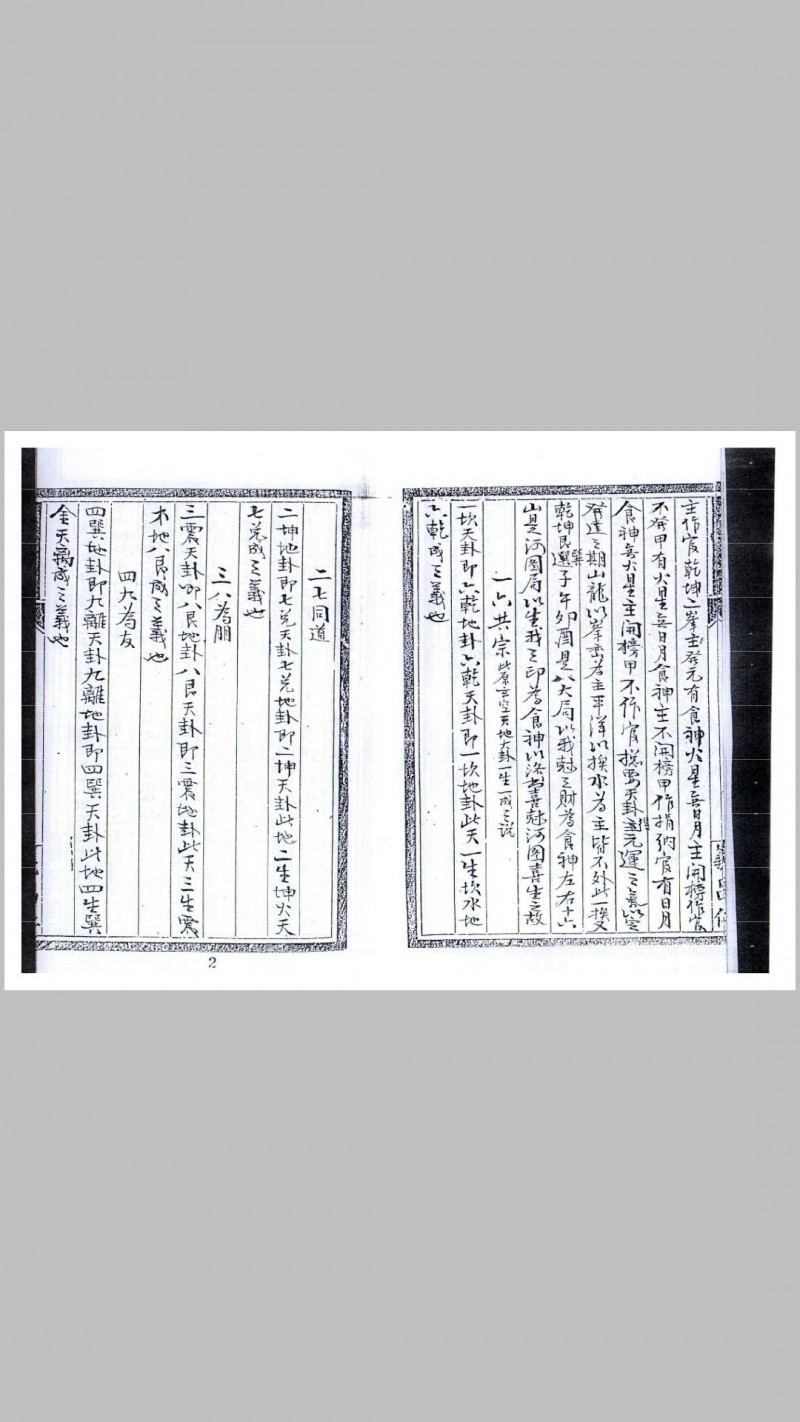 主作官乾坤二峯主發元有食神火星無日月主開榜作官
不發甲有火星無日月食神主不開榜甲作捐納官有日月
食神無火星主開榜甲不作官總要天卦主元運之氣以定
發達之期山龍以峯巒為主平洋以挨水為主皆不外此一挨又
乾坤艮巽選子午卯酉是八大局以我尅之財為食神左右十六
山是河圖局以生我之印為食神以洛書喜尅河圖喜生之故
一六共宗 此原玄空天地大卦一生一成之說
一坎天卦即六乾地卦六乾天卦即一坎地卦此天一生坎水地
六乾成之義也
二七同道
二坤地卦即七兌天卦七兌地卦即二坤天卦此地二生坤火天
七兌成之義也
三八為朋
三震天卦即八艮地卦八艮天卦即三震地卦此天三生震
木地八艮成之義也
四九為友
四巽地卦即九離天卦九離地卦即四巽天卦此地四生巽
金天離成之義也
2